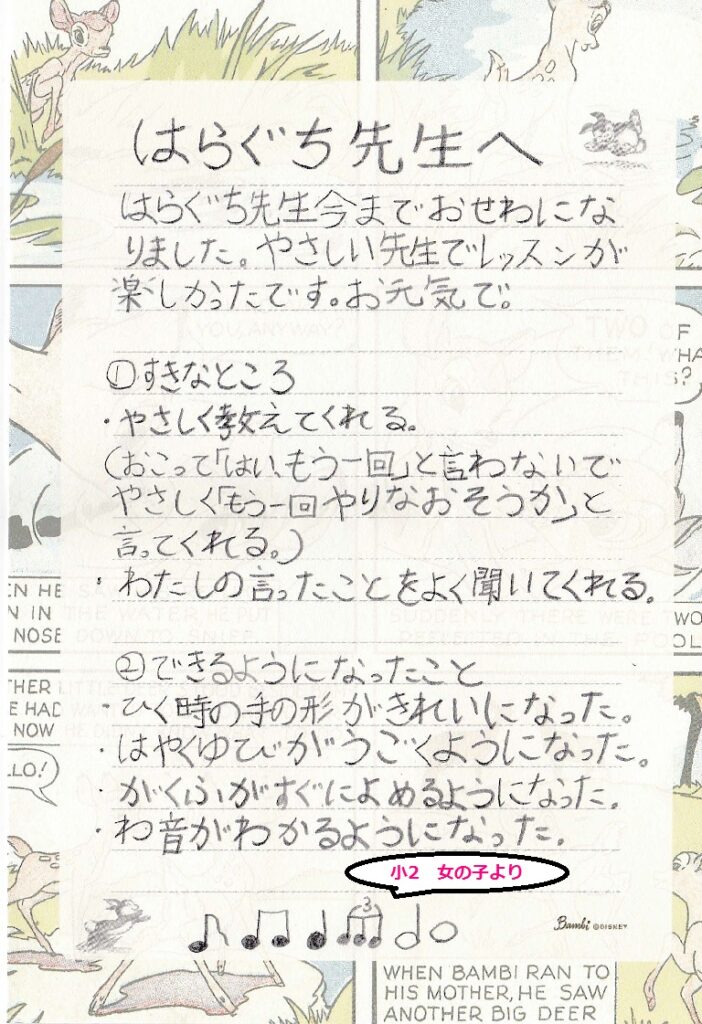 はらぐち先生へ
はらぐち先生今までおせわにな
りました。やさしい先生でレッスンが
楽しかったです。お元気で。
①すきなところ
・やさしく教えてくれる。
(おこって「はい、もう一回」と言わないで
やさしく「もう一回やりなおそうか」と
言ってくれる。)
・わたしの言ったことをよく聞いてくれる。
②できるようになったこと
・ひく時の手の形がきれいになった。
・はやくゆびがうごくようになった。
・がくふがすぐによめるようになった。
・わ音がわかるようになった。
小2 女の子より
3
Bambi ©DISNEY
YOU, ANYWAY?
TWO OF
THEM! WHA
THIS?
EN HE SAW
N IN THE WATER, HE PUT
NOSE DOWN TO SNIFF.
SUDDENLY THERE WERE TWO
REFLECTED IN THE POOL
THER
E HAD
NOW
LLO!
WHEN BAMBI RAN TO
HIS MOTHER, HE SAW
ANOTHER BIG DEER